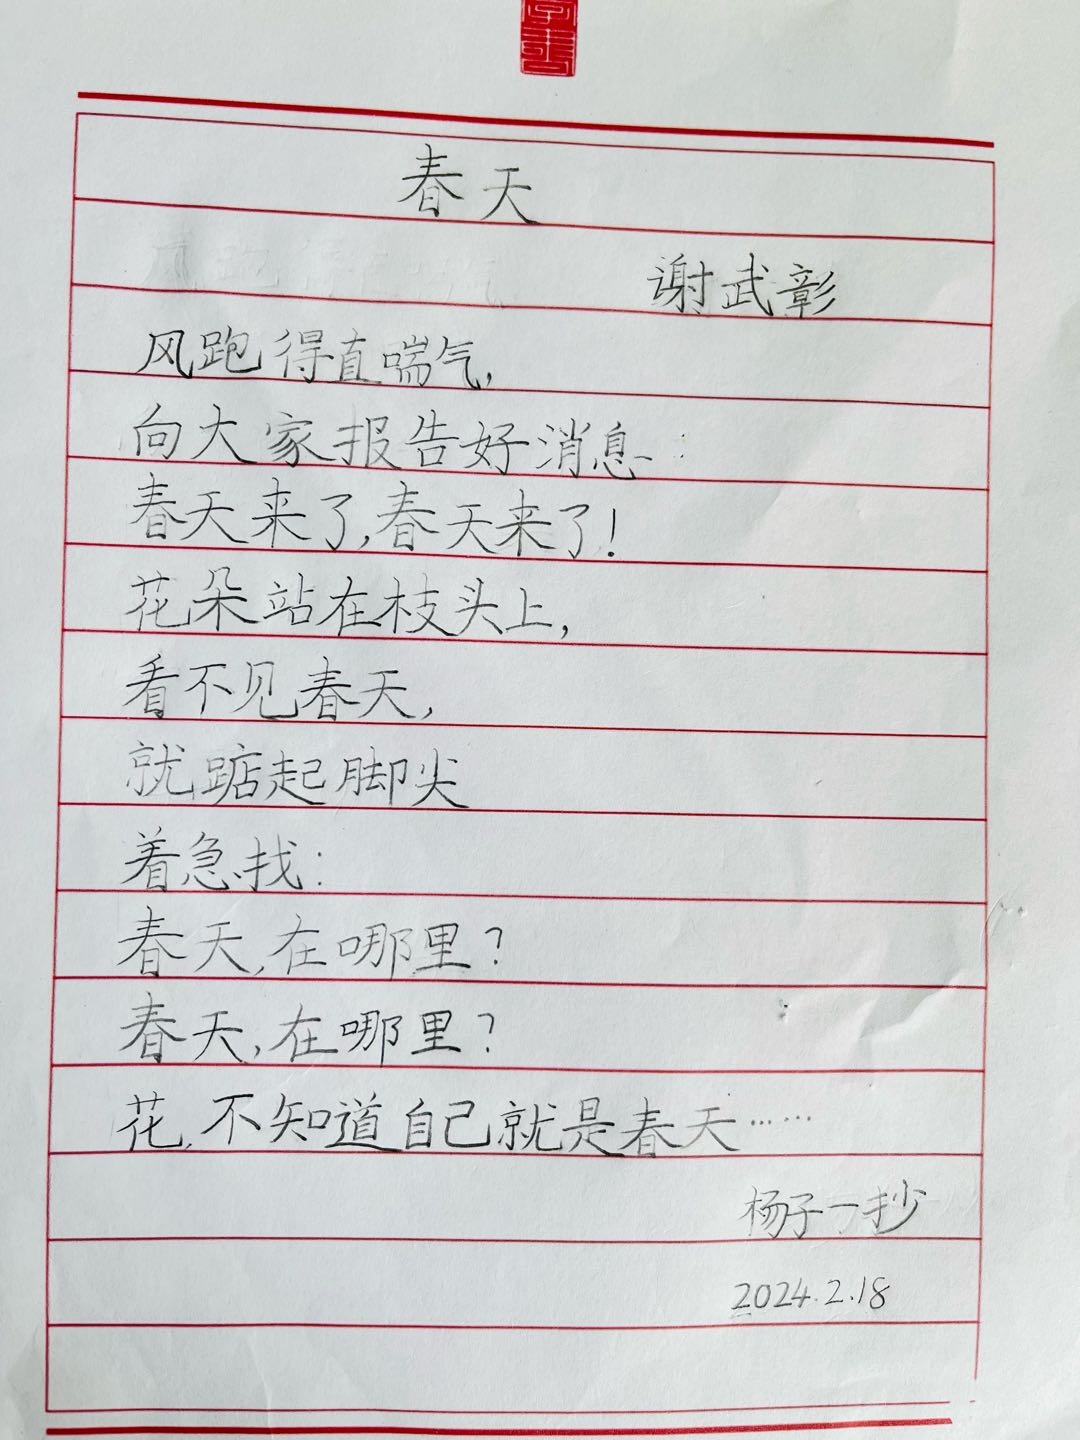 春天
谢武彰
风跑得直喘气,
向大家报告好消息:
春天来了,春天来了!
花朵站在枝头上,
看不见春天,
就踮起脚尖
着急找:
春天,在哪里?
春天,在哪里?
花,不知道自己就是春天……
杨子一抄
2024.2.18